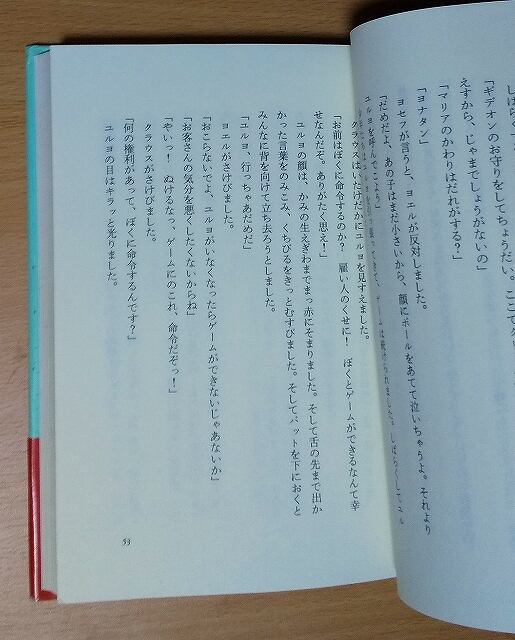 しばらく
「ギデオンのお守りをしてちょうだい。ここで
えすから、じゃまでしょうがないの」
「マリアのかわりはだれがする？」
「ヨナタン」
ヨセフが言うと、ヨエルが反対しました。
「だめだよ、あの子はまだ小さいから、顔にボールをあてて泣いちゃうよ。それより
ユルヨを呼んでこよう」
ゲームは続けられました。しばらくしてユル
クラウスはいたけだかにユルヨを見すえました。
「お前はぼくに命令するのか？　雇い人のくせに！　ぼくとゲームができるなんて幸
せなんだぞ。ありがたく思え！」
ユルヨの顔は、かみの生えぎわまでまっ赤にそまりました。そして舌の先まで出か
かった言葉をのみこみ、くちびるをきっとむすびました。そしてバットを下におくと
みんなに背を向けて立ち去ろうとしました。
「ユルヨ、行っちゃあだめだ」
ヨエルがさけびました。
「おこらないでよ、ユルヨがいなくなったらゲームができないじゃあないか」
「お客さんの気分を悪くしたくないからね」
「やいっ！　ぬけるなっ、ゲームにのこれ、命令だぞっ！」
クラウスがさけびました。
「何の権利があって、ぼくに命令するんです？」
ユルヨの目はキラッと光りました。
53